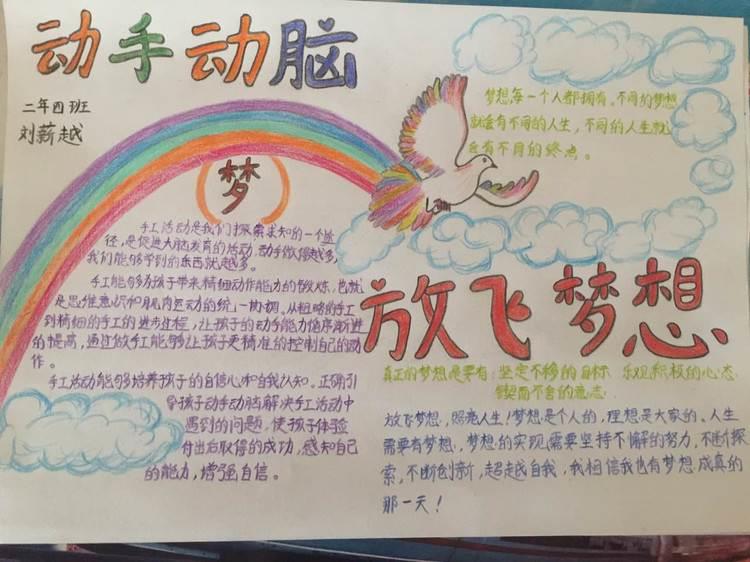 动手动脑
二年四班
刘薪越
梦
手工活动是我们探索求知的一个途
径,是促进大脑发育的活动,动手做得越多,
我们能够学到的东西就越多。
手工能够为孩子带来精细动作能力的锻炼,也就
是思维意识和肌肉运动的统一协调。从粗略的手工
到精细的手工的进步过程,让孩子的动手能力循序渐进
的提高,通过做手工能够让孩子更精准的控制自己的动
作。
手工活动能够培养孩子的自信心和自我认知。正确引
导孩子动手动脑解决手工活动中
遇到的问题,使孩子体验
付出后取得的成功,感知自己
的能力,增强自信。
梦想,每一个人都拥有。不同的梦想
就会有不同的人生,不同的人生就
会有不同的终点。
放飞梦想
真正的梦想是要有:坚定不移的目标 乐观积极的心态
锲而不舍的意志
放飞梦想,照亮人生!梦想是个人的,理想是大家的。人生
需要有梦想,梦想的实现需要坚持不懈的努力,不断探
索,不断创新,超越自我,我相信我也有梦想成真的
那一天!